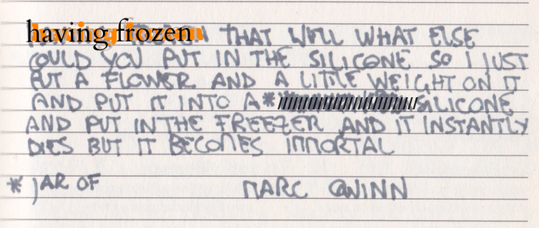 having frozen THAT WELL WHAT ELSE
COULD YOU PUT IN THE SILICONE SO I JUST
PUT A FLOWER AND A LITTLE WEIGHT ON IT
AND PUT IT INTO A* SILICONE
AND PUT IN THE FREEZER AND IT INSTANTLY
DIES BUT IT BECOMES IMMORTAL
* JAR OF MARC QUINN